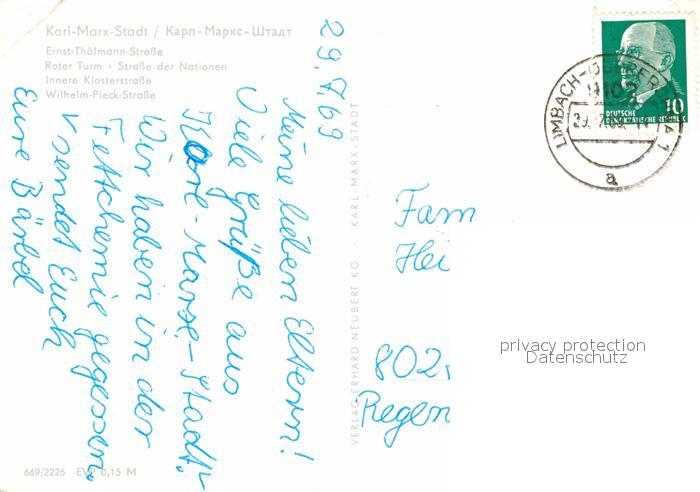 Karl-Marx-Stadt / Карл-Маркс-Штадт
Ernst-Thälmann-Straße
Roter Turm · Straße der Nationen
Innere Klosterstraße
Wilhelm-Pieck-Straße
29.7.69
Meine lieben Eltern!
Viele Grüße aus
Karl-Marx-Stadt.
Wir haben in der
Fettchemie gegessen.
sendet Euch
Eure Bärbel
669/2226 EVP 0,15 M
VERLAG ERHARD NEUBERT KG · KARL-MARX-STADT
LIMBACH-OBERFROHNA 1
9102
a
10
DEUTSCHE
DEMOKRATISCHE REPUBLIK
Fam
Hei
802
Regen
privacy protection
Datenschutz